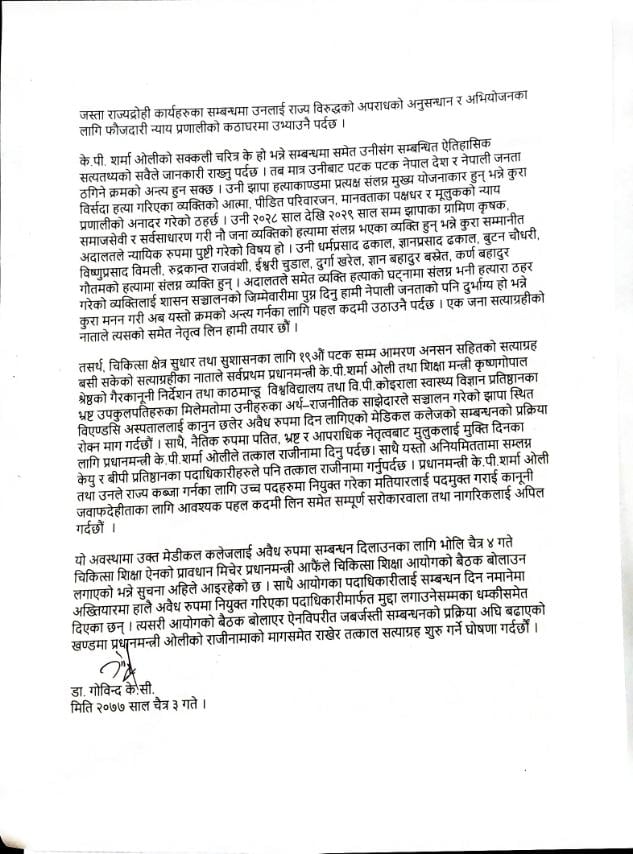 जस्ता राज्यद्रोही कार्यहरुका सम्बन्धमा उनलाई राज्य विरुद्धको अपराधको अनुसन्धान र अभियोजनका
लागि फौजदारी न्याय प्रणालीको कठाघरमा उभ्याउनै पर्दछ ।
के.पी. शर्मा ओलीको सक्कली चरित्र के हो भन्ने सम्बन्धमा समेत उनीसंग सम्बन्धित ऐतिहासिक
सत्यतथ्यको सवैले जानकारी राख्नु पर्दछ । तब मात्र उनीबाट पटक पटक नेपाल देश र नेपाली जनता
ठगिने क्रमको अन्त्य हुन सक्छ । उनी झापा हत्याकाण्डमा प्रत्यक्ष संलग्न मुख्य योजनाकार हुन् भन्ने कुरा
विर्सदा हत्या गरिएका व्यक्तिको आत्मा, पीडित परिवारजन, मानवताका पक्षधर र मूलुकको न्याय
प्रणालीको अनादर गरेको ठहर्छ । उनी २०२८ साल देखि २०२९ साल सम्म झापाका ग्रामिण कृषक,
समाजसेवी र सर्वसाधारण गरी नौ जना व्यक्तिको हत्यामा संलग्न भएका व्यक्ति हुन् भन्ने कुरा सम्मानीत
अदालतले न्यायिक रुपमा पुष्टी गरेको विषय हो । उनी धर्मप्रसाद ढकाल, ज्ञानप्रसाद ढकाल, बुटन चौधरी,
विष्णुप्रसाद विमली, रुद्रकान्त राजवंशी, ईश्वरी चुडाल, दुर्गा खरेल, ज्ञान बहादुर बस्नेत, कर्ण बहादुर
गौतमको हत्यामा संलग्न व्यक्ति हुन् । अदालतले समेत व्यक्ति हत्याको घट्नामा संलग्न भनी हत्यारा ठहर
गरेको व्यक्तिलाई शासन सञ्चालनको जिम्मेवारीमा पुग्न दिनु हामी नेपाली जनताको पनि दुर्भाग्य हो भन्ने
कुरा मनन गरी अब यस्तो क्रमको अन्त्य गर्नका लागि पहल कदमी उठाउनै पर्दछ । एक जना सत्याग्रहीको
नाताले त्यसको समेत नेतृत्व लिन हामी तयार छौं ।
तसर्थ, चिकित्सा क्षेत्र सुधार तथा सुशासनका लागि १९औं पटक सम्म आमरण अनसन सहितको सत्याग्रह
बसी सकेको सत्याग्रहीका नाताले सर्वप्रथम प्रधानमन्त्री के.पी ओली तथा शिक्षा मन्त्री कृष्णगोपाल
श्रेष्ठको गैरकानूनी निर्देशन तथा काठमान्डू विश्वविद्यालय तथा वि.पी.कोइराला स्वास्थ्य विज्ञान प्रतिष्ठानका
भ्रष्ट उपकुलपतिहरुका मिलेमतोमा उनीहरुका अर्थ–राजनीतिक साझेदारले सञ्चालन गरेको झापा स्थित
विएण्डसि अस्पताललाई कानुन छलेर अवैध रुपमा दिन लागिएको मेडिकल कलेजको सम्बन्धनको प्रक्रिया
रोक्न माग गर्दछौं । साथै, नैतिक रुपमा पतित, भ्रष्ट र आपराधिक नेतृत्वबाट मुलुकलाई मुक्ति दिनका
लागि प्रधानमन्त्री के.पी.शर्मा ओलीले तत्काल राजीनामा दिनु पर्दछ। साथै यस्तो अनियमिततामा सम्लग्न
केयु र बीपी प्रतिष्ठानका पदाधिकारीहरुले पनि तत्काल राजीनामा गर्नुपर्दछ । प्रधानमन्त्री के.पी.शर्मा ओली
तथा उनले राज्य कब्जा गर्नका लागि उच्च पदहरुमा नियुक्त गरेका मतियारलाई पदमुक्त गराई कानूनी
जवाफदेहीताका लागि आवश्यक पहल कदमी लिन समेत सम्पूर्ण सरोकारवाला तथा नागरिकलाई अपिल
गर्दछौं ।
यो अवस्थामा उक्त मेडीकल कलेजलाई अवैध रुपमा सम्बन्धन दिलाउनका लागि भोलि चैत्र ४ गते
चिकित्सा शिक्षा ऐनको प्रावधान मिचेर प्रधानमन्त्री आफैंले चिकित्सा शिक्षा आयोगको बैठक बोलाउन
लगाएको भन्ने सुचना अहिले आइरहेको छ । साथै आयोगका पदाधिकारीलाई सम्बन्धन दिन नमानेमा
अख्तियारमा हालै अवैध रुपमा नियुक्त गरिएका पदाधिकारीमार्फत मुद्दा लगाउनेसम्मका धम्कीसमेत
दिएका छन् । त्यसरी आयोगको बैठक बोलाएर ऐनविपरीत जबर्जस्ती सम्बन्धनको प्रक्रिया अघि बढाएको
खण्डमा प्रधानमन्त्री ओलीको राजीनामाको मागसमेत राखेर तत्काल सत्याग्रह शुरु गर्ने घोषणा गर्दछौं ।
डा. गोविन्द के.सी.
मिति २०७७ साल चैत्र ३ गते ।